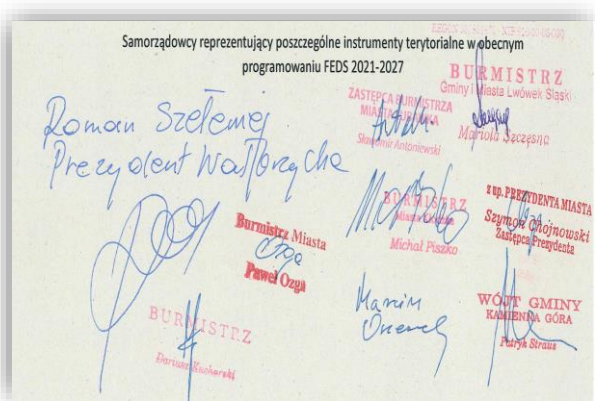 Samorządowcy reprezentujący poszczególne instrumenty terytorialne w obecnym
programowaniu FEDS 2021-2027
BURMISTRZ
Gminy i Miasta Lwówek Śląski
Mariola Szczęsna
ZASTĘPCA BURMISTRZA
MIASTA
Sławomir Antoniewski
Roman Szełemej
Prezydent Wałbrzycha
BURMISTRZ
Michał Piszko
z up. PREZYDENTA MIASTA
Szymon Chojnowski
Zastępca Prezydenta
Burmistrz Miasta
Paweł Ozga
BURMISTRZ
Dariusz Kucharski
Marcin
WÓJT GMINY
KAMIENNA GÓRA
Patryk Straus